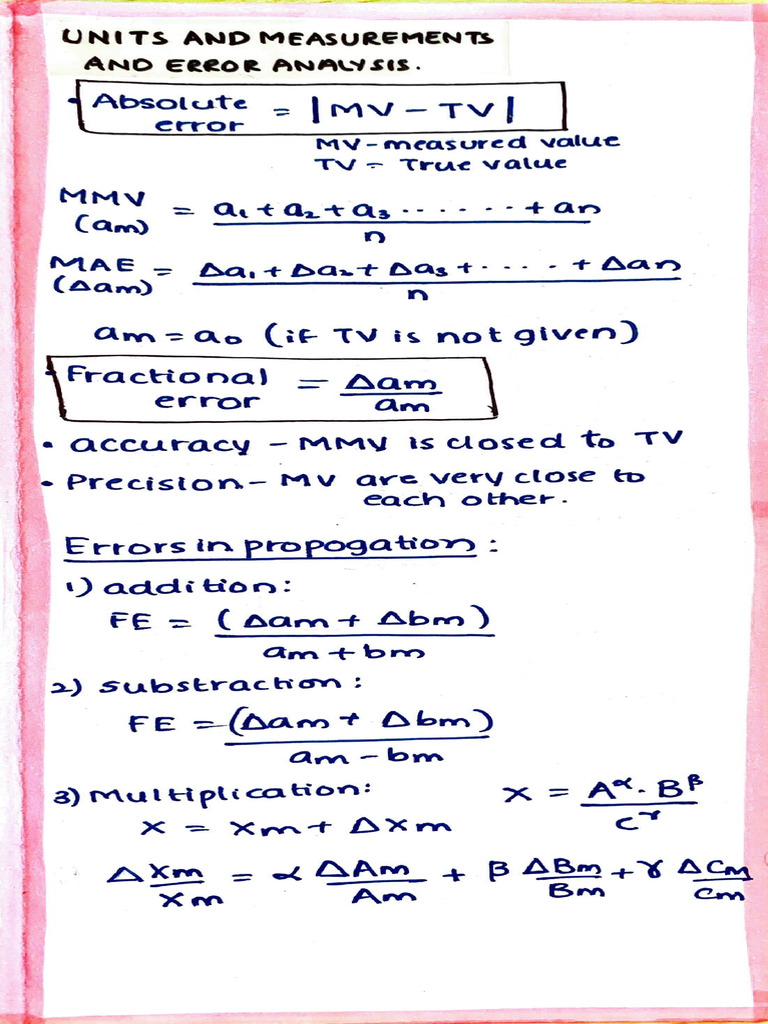 UNITS AND MEASUREMENTS
AND ERROR ANALYSIS.
• Absolute error = |MV - TV|
MV - measured value
TV - True value
MMV (am) = a₁ + a₂ + a₃ ....... + an / n
MAE (Δam) = Δa₁ + Δa₂ + Δa₃ + ..... + Δan / n
am = a₀ (if TV is not given)
• Fractional error = Δam / am
• accuracy - MMV is closed to TV
• Precision - MV are very close to
each other.
Errors in propogation :
1) addition:
FE = (Δam + Δbm) / am + bm
2) substraction:
FE = (Δam + Δbm) / am - bm
3) Multiplication: X = A^α · B^β / C^γ
X = Xm + ΔXm
ΔXm / Xm = α ΔAm / Am + β ΔBm / Bm + γ ΔCm / Cm